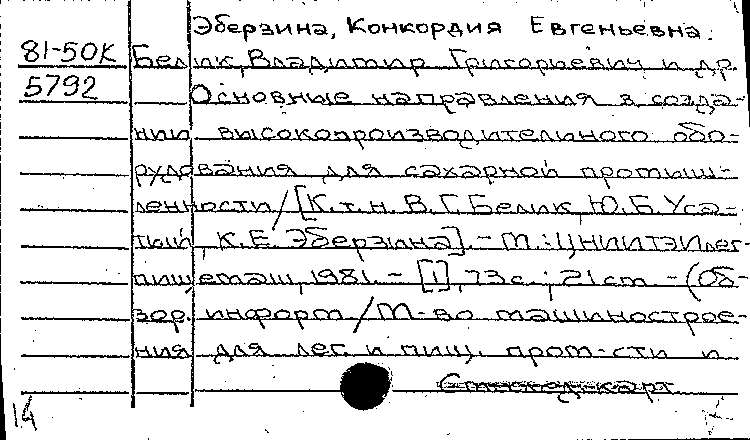 Эберзина, Конкордия Евгеньевна.
81-50К Белик, Владимир Григорьевич и др.
5792 Основные направления в созда-
нии высокопроизводительного обо-
рудования для сахарной промыш-
ленности / [К.т.н. В.Г. Белик, Ю.Б. Уса-
тый, К.Е. Эберзина]. - М.: ЦНИИТЭИлег-
пищемаш, 1981. - [1], 73 с.; 21 см. - (Об-
зор. информ / М-во машинострое-
ния для лег. и пищ. пром-сти и
14